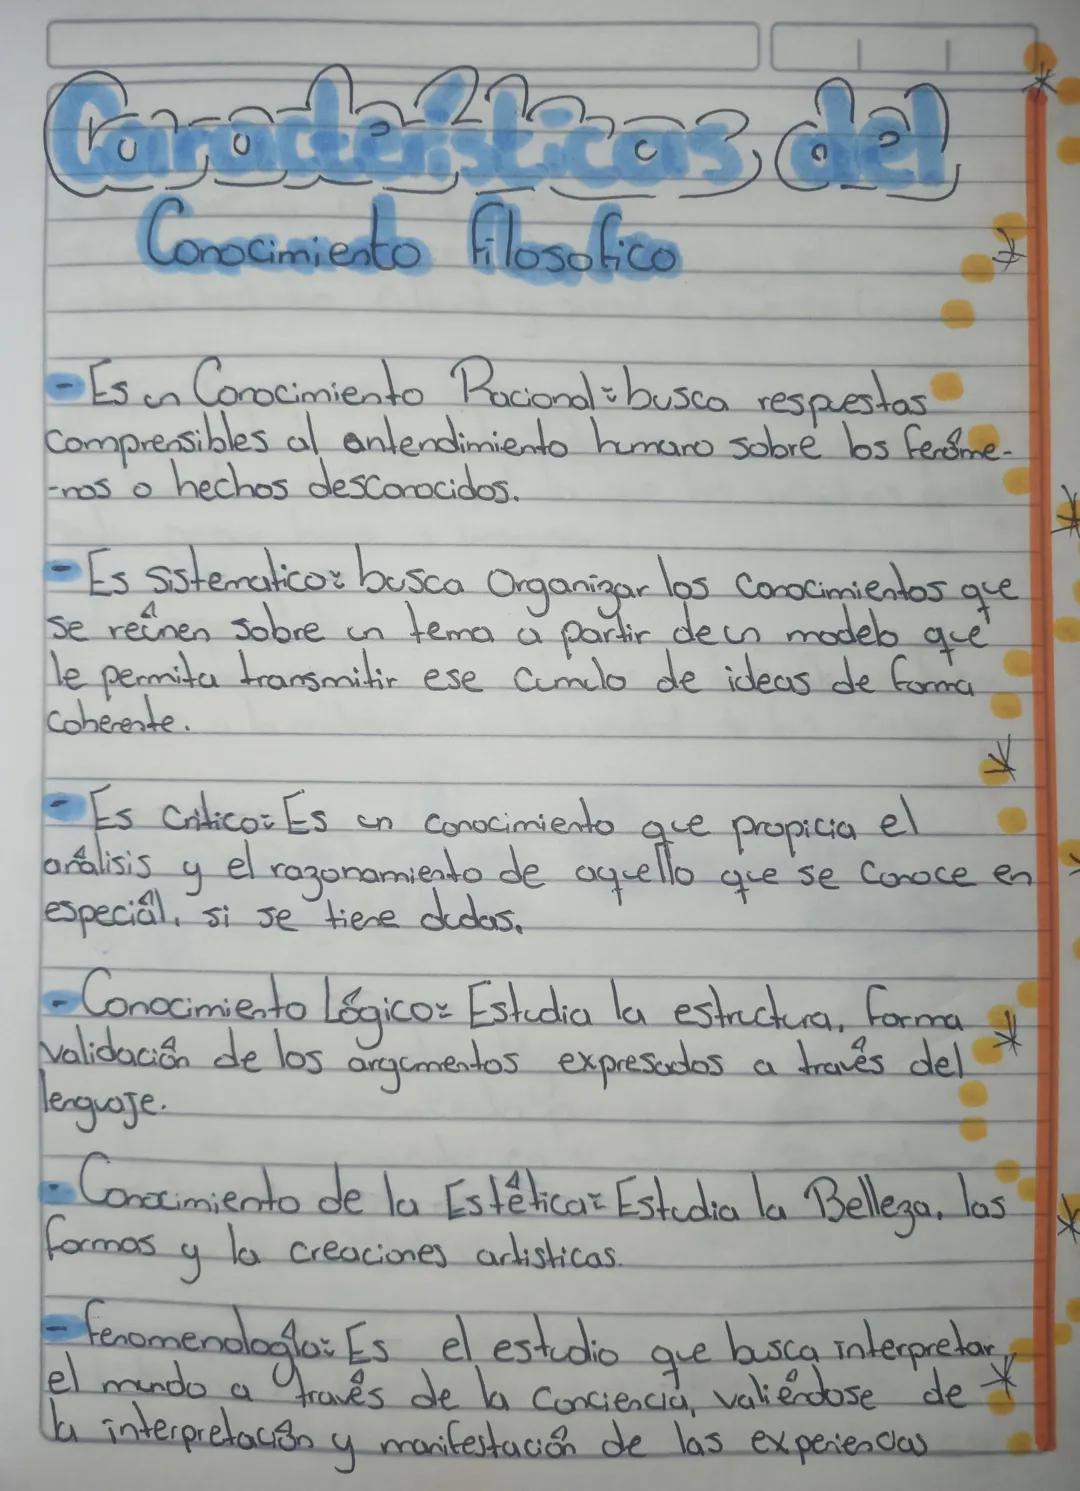 Características del
Conocimiento Filosofico
- Es un Conocimiento Racional: busca respuestas
comprensibles al entendimiento humano sobre los fenóme-
-nos o hechos desconocidos.
- Es Sistematico: busca Organizar los Conocimientos que
se reúnen sobre un tema a partir de un modelo que
le permita transmitir ese cumulo de ideas de forma
coherente.
- Es Critico: Es un conocimiento que propicia el
análisis y el razonamiento de aquello que se Conoce en
especiál, si se tiene dudas.
- Conocimiento Lógico: Estudia la estructura, forma
validación de los argumentos expresados a través del
lenguaje.
- Conocimiento de la Estética: Estudia la Belleza, las
formas y la creaciones artisticas.
- Fenomenología: Es el estudio que busca interpretar
el mundo a través de la Conciencia, valiéndose de
la interpretación y manifestación de las experiencias